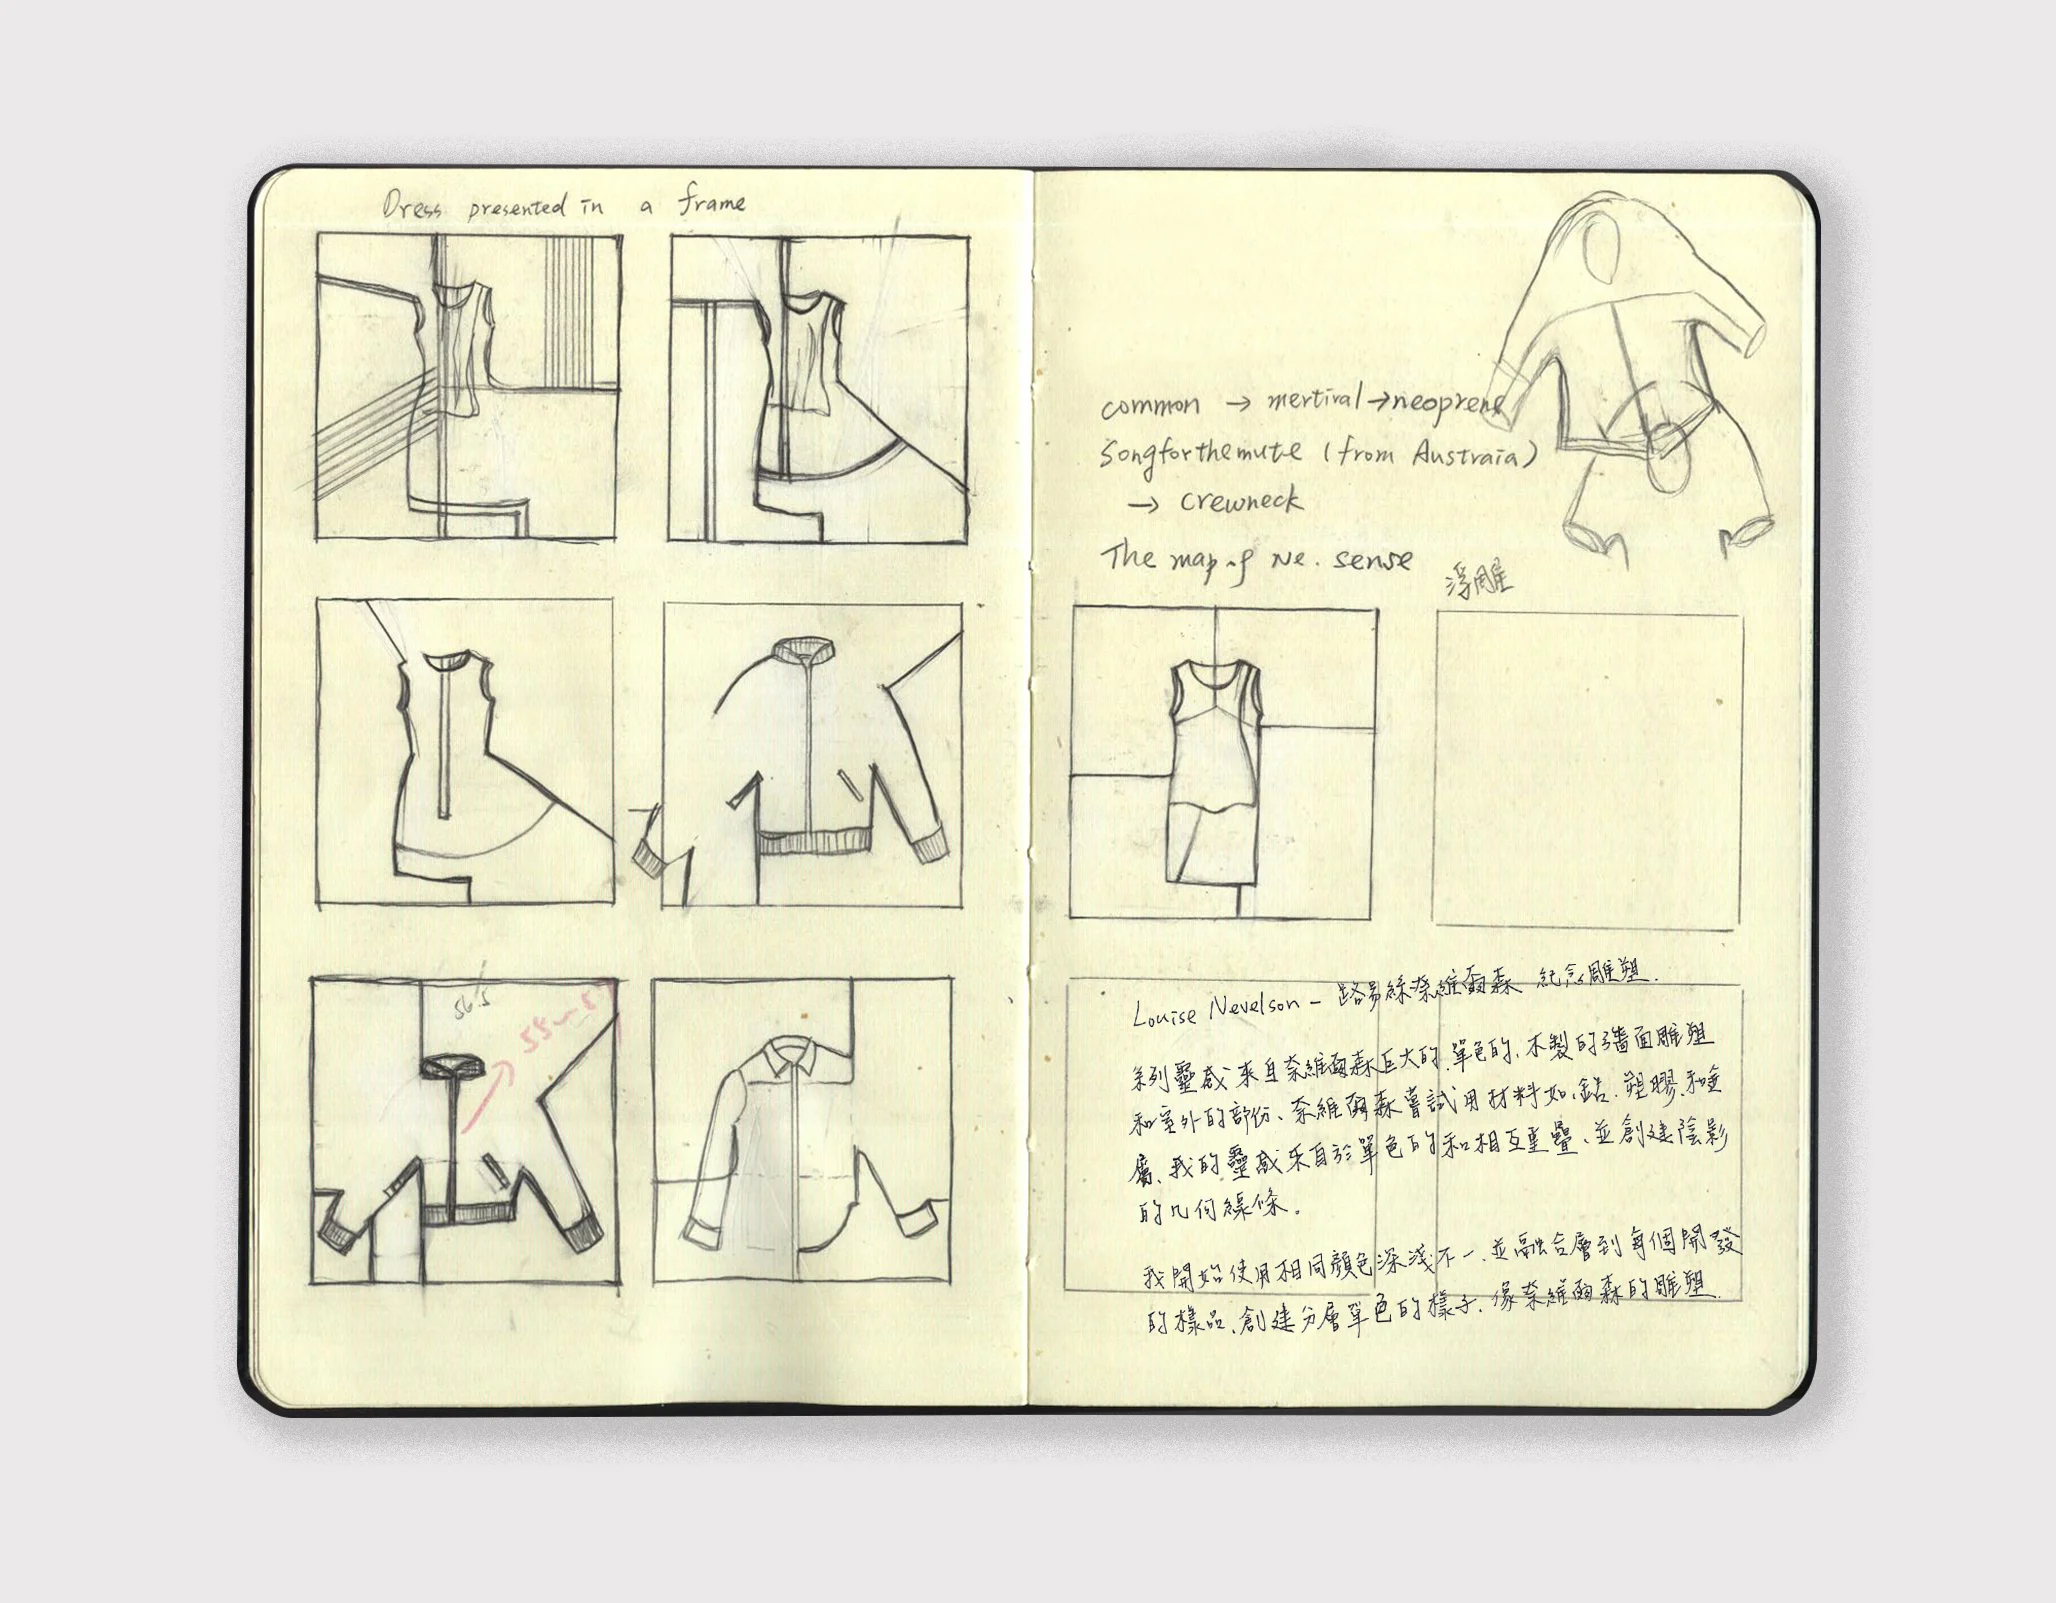 Dress presented in a frame
common → mertiral → neoprene
Songforthemute (from Austraia)
→ crewneck
The map of Ne. sense
浮雕
56.5
55~57
Louise Nevelson - 路易絲奈維爾森 紀念雕塑.
系列靈感來自奈維爾森巨大的.單色的.木製的牆面雕塑
和室外的部份、奈維爾森嘗試用材料如.鋁.塑膠.和金
屬、我的靈感來自於單色的和相互重疊、並創建陰影
的几何線條。
我開始使用相同顏色深淺不一.並融合層到每個開發
的樣品、創建分層單色的樣子.像奈維爾森的雕塑.